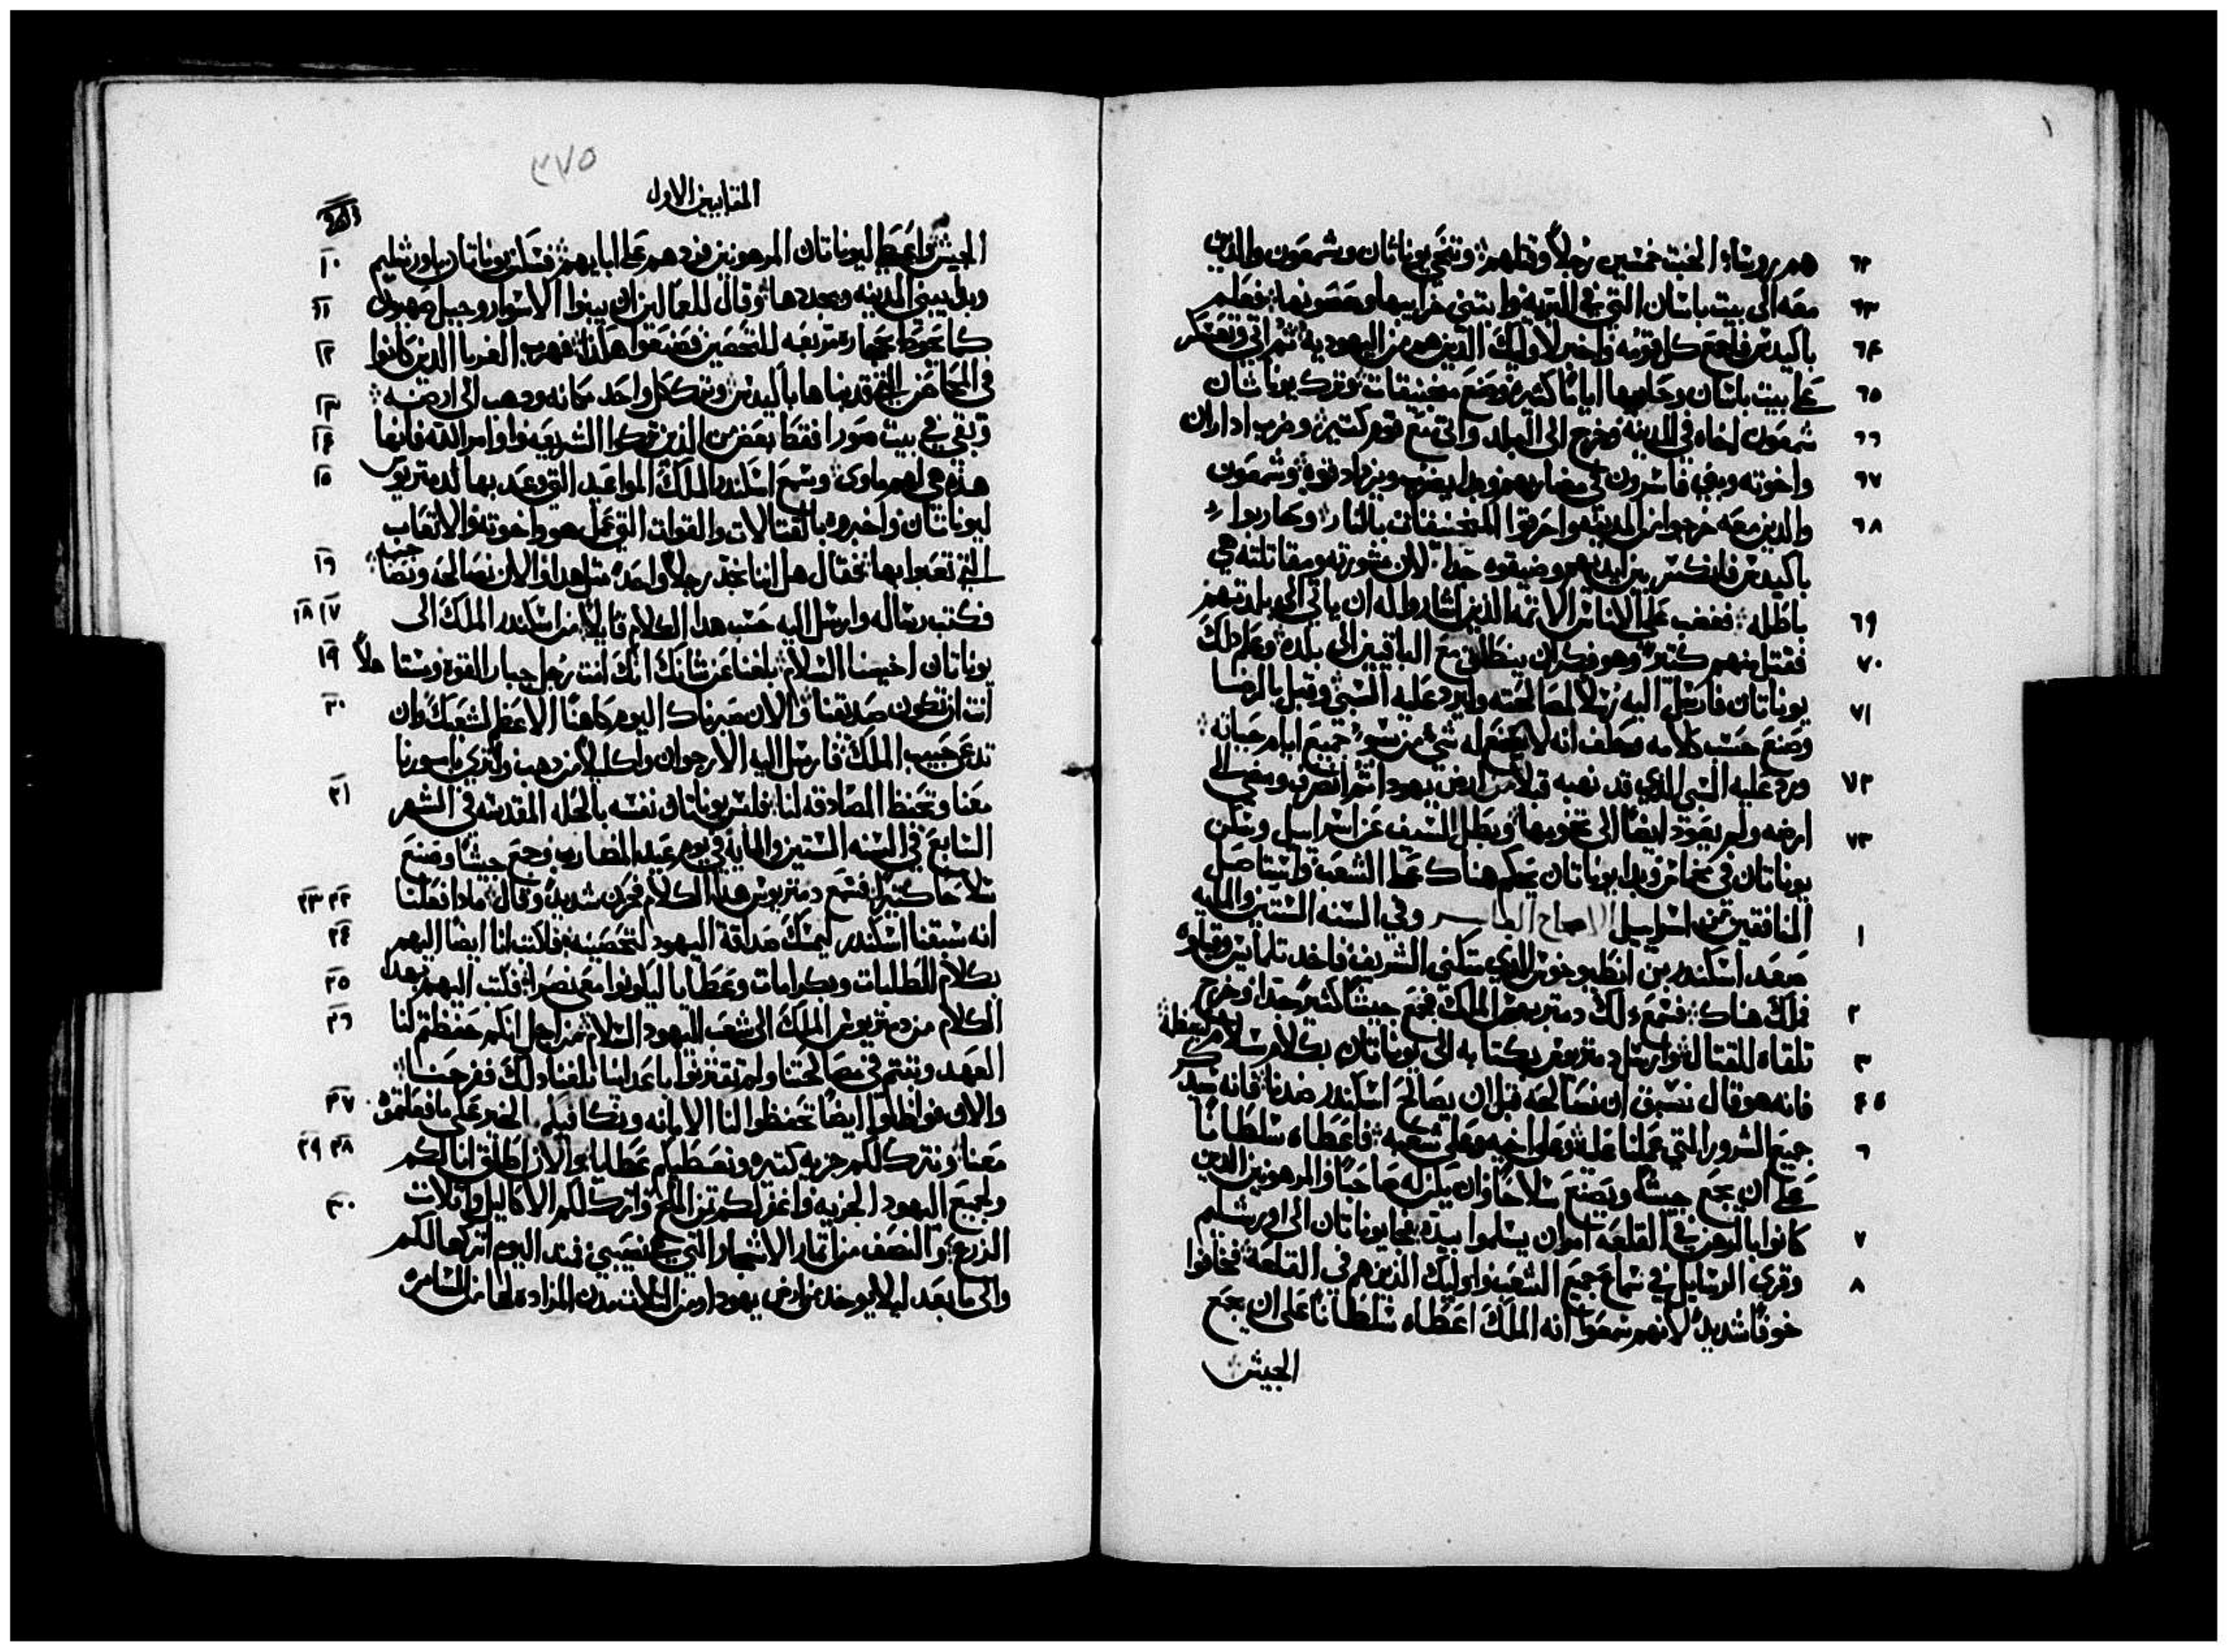 ٦٢ هم روساء الخبث خمسين رجلاً وقتلهم وتنحي يوناتان وشمعون والدين
٦٣ معه الى بيت باسان التي في البريه وابتني خرابيها وحصونها فعلم
٦٤ باكيدس فاجمع كل قومه واخبر لاوليك الدين هم من اليهوديه ثم اتي وتعسكر
٦٥ علي بيت باسان وحاربها اياماً كثيره وصنع منجنيقات وترك يوناتان
٦٦ شمعون اخاه في المدينه وخرج الى البلد واتى مع قوم كتير وضرب اداران
٦٧ واخوته وبني فاسرون في مضاربهم وبدا يضرب ويزداد قوه وشمعون
٦٨ والدين معه خرجوا من المدينه واحرقوا المنجنيقات بالنار وحاربوا
باكيدس فانكسر بين ايديهم وضيقوه جداً لان مشورته ومقاتلته هي
٦٩ باطله فغضب علي الاناس الاتمه الدين اشاروا له ان ياتي الى بلدتهم
٧٠ فقتل منهم كتير وهو فكر ان ينطلق مع الباقيين الى بلده وعلم دلك
٧١ يوناتان فارسل اليه رسلاً لمصالحته وليرد عليه السبي وقبل بالرضا
وصنع حسب كلامه وحلف انه لا يصنع له شي من سو جميع ايام حياته
٧٢ ورد عليه السبي الدي قد نهبه قبلاً من ارض يهودا ثم انصرف ومضي الي
٧٣ ارضه ولم يعود ايضاً الى تخومها وبطل السيف عن اسراييل وسكن
يوناتان في مخماس وبدا يوناتان يحكم هناك علي الشعب واستاصل
١ المنافقين من اسراييل الاصحاح العاشر وفي السنه الستين والمايه
صعد اسكندر بن انطيوخوس الدي يتكني الشريف فاخد تلمايس وقبلوه
٢ فملك هناك فسمع دلك دمتريوس الملك فجمع جيشاً كثير جداً وخرج
٣ تلقاه للقتال وارسل دمتريوس بكتابه الى يوناتان بكلام سلام ليعظمه
٤ ٥ فانه هو قال نسبق ان نصالحه قبل ان يصالح اسكندر ضدنا فانه سيدكر
٦ جميع الشرور التي عملنا عليه وعلي اخيه وعلي شعبه فاعطاه سلطاناً
علي ان يجمع جيشاً ويصنع سلاحاً وان يكن له صاحباً والمرهونين الدين
٧ كانوا بالرهن في القلعه امر ان يسلموا بيده فجا يوناتان الى اورشليم
٨ وقري الرسايل في سماع جميع الشعب واوليك الذين هم في القلعه فخافوا
خوفاً شديد لانهم سمعوا انه الملك اعطاه سلطاناً علي ان يجمع
الجيش
٣٧٥
المقابيين الاول
الجيش واعطي ليوناتان المرهونين فردهم علي ابايهم فسكن يوناتان باورشليم ١٠
وبدا يبني المدينه ويجددها وقال للعمالين ان يبنوا الاسوار وجبل صهيون ١١
كما يحوط بحجاره مربعه للتحصين فصنعوا هكذا فهرب الغربا الدين كانوا ١٢
في المحاضن التي قد بناها باكيدس وترك كل واحد مكانه ودهب الى ارضه ١٣
وبقي في بيت صورا فقط بعض من الذين تركوا الشريعه واوامر الله فانها ١٤
هذه هي لهم ماوى وسمع اسكندر الملك المواعيد التي وعد بها لدمتريوس ١٥
ليوناتان واخبروه بالقتالات والقوات التي عمل هو واخوته والاتعاب
التي تعبوا بها فقال هل اننا نجد رجلاً واحد مثل هدا والان نصالحه ونصاحبه ١٦
فكتب رساله وارسل اليه حسب هدا الكلام قايلاً من اسكندر الملك الى ١٧ ١٨
يوناتان اخينا السلام بلغنا عن شانك انك انت رجل جبار القوه ومستاهلاً ١٩
انت ان تكون صديقنا والان صيرناك اليوم كاهناً الاعظم لشعبك وان ٢٠
تدعي حبيب الملك فارسل اليه الارجوان واكليلاً من دهب وليري بامورنا
معنا وتحفظ المصادقه لنا فلبس يوناتان نفسه بالحله المقدسه في الشهر ٢١
السابع في السنه الستين والمايه في يوم عيد المضارب وجمع جيشاً وصنع
سلاحاً كثيراً فسمع دمتريوس هدا الكلام فحزن شديد وقال مادا فعلنا ٢٢ ٢٣
انه سبقنا اسكندر ليمسك صداقة اليهود لتحصينه فاكتب انا ايضاً اليهم ٢٤
بكلام الطلبات وبكرامات وعطايا ليكونوا معي نصراً فكتب اليهم بهدا ٢٥
الكلام من دمتريوس الملك الى شعب اليهود السلام من اجل انكم حفظتم لنا ٢٦
العهد وبقيتم في مصالحتنا ولم تقتربوا باعداينا بلغنا دلك ففرحنا
والان فواظبوا ايضاً تحفظوا لنا الامانه ونكافيكم الخير علي ما فعلتموه ٢٧
معنا ونترك لكم جزيه كتيره ونعطيكم عطايا والان اطلق انا لكم ٢٨ ٢٩
ولجميع اليهود الجزيه واغفر لكم تمن الملح واترك لكم الاكاليل واتلات
الزرع والنصف من اتمار الاشجار التي هي نصيبي فمند اليوم اتركها لكم ٣٠
والى ما بعد ليلا يوخد من ارض يهودا ومن التلات مدن المزاده لها من السامره